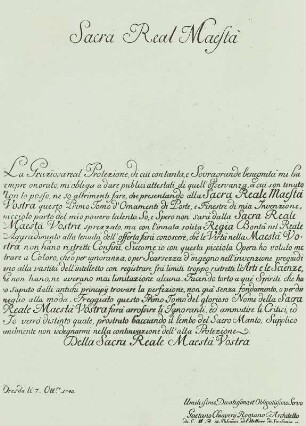 Sacra Real Maestà
La Preziosa real Protezione, di cui con tanta, e Sovragrande benignità mi ha
sempre onorato, mi obliga a dare publici attestati di quell'osservanza, a cui son tenuto
Non lo posso, ne sò altrimenti fare, che presentando alla Sacra Reale Maestà
Vostra questo Primo Tomo d'Ornamenti di Porte, e Finestre di mia Invenzione,
piccolo parto del mio povero talento. So, e Spero non sarà dalla Sacra Reale
Maestà Vostra sprezzato, ma con l'innata solita Regia Bontà nel Reale
Aggradimento alla tenuità dell'offerta farà conoscere, che le Virtù nella Maestà Vo-
stra non hanno ristretti Confini, Siccome io con questa piccola Opera ho voluto mo-
strare a Coloro, che ò per ignoranza, o per Scarsezza d'ingegno nell'invenzione pregiudi-
cano alla vastità dell'intelletto con registrare frà limiti troppo ristretti le Arti, e le Scienze,
che non hanno, ne averanno mai limitazione alcuna. Facendo torto a quei Spiriti che ha-
no saputo dalli antichi principj trovare la perfezione, non già senza fondamento, o per dir
meglio alla moda. Freggiato questo Primo Tomo del glorioso Nome della Sacra
Reale Maestà Vostra farà arrossire li Ignoranti, ed ammutire li Critici, ed
Io verrò distinto quale, prostrato bacciando il lembo del Sacro Manto, Supplico
umilmente non isdegnarmi nella continuazione dell'alta Protezione
Della Sacra Reale Maestà Vostra
Dresda li 7.
Umilissimo Devotissimo et Obligatissimo Servo
Gaetano Chiaveri Romano Architetto